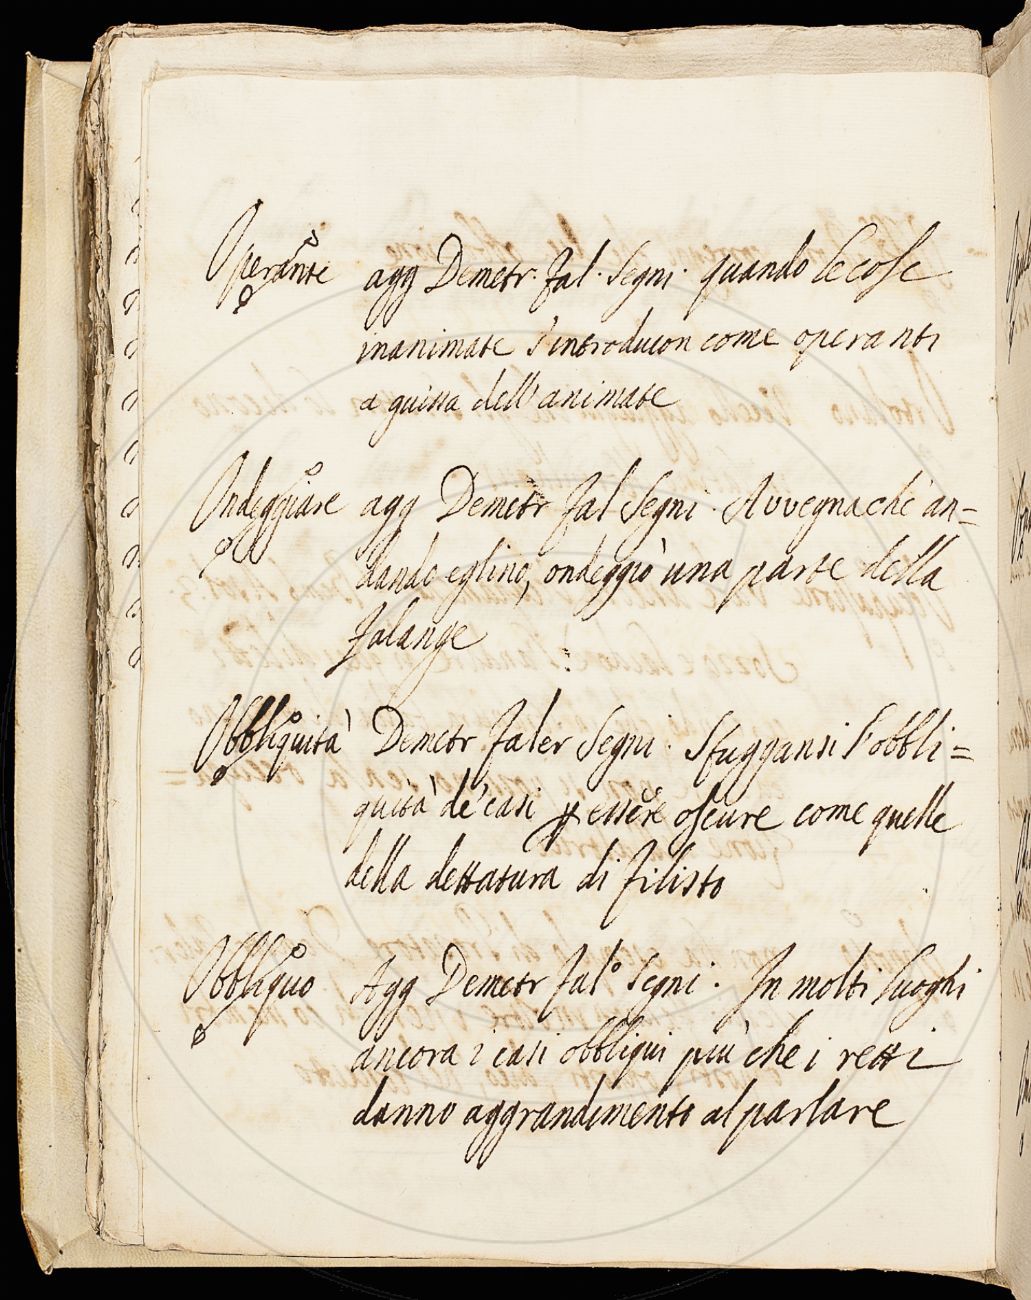 Operante agg Demetr. Fal. Segni. quando le cose
inanimate s'introducon come operanti
a guisa dell'animate
Ondeggiare agg Demetr Fal Segni. Avvegnache an=
dando eglino, ondeggiò una parte della
falange
Obbliquità Demetr Faler Segni. Sfuggansi l'obbli=
quità de' casi ꝑ essere oscure come quelle
della dettatura di Filisto
Obbliquo Agg Demetr Fal.º Segni. In molti luoghi
ancora i casi obbliqui più che i retti
danno aggrandimento al parlare